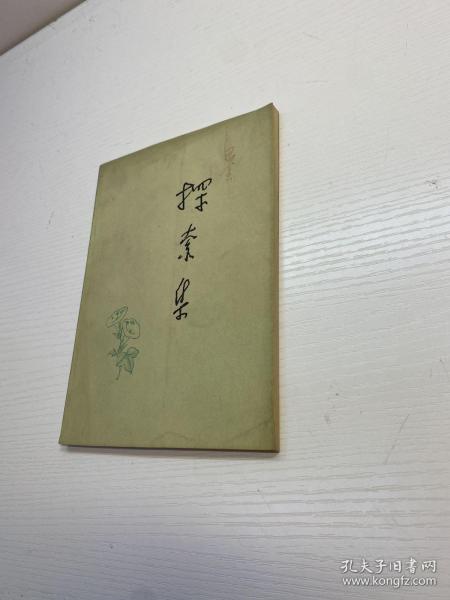 探索集
孔夫子旧书网
www.kongfz.com